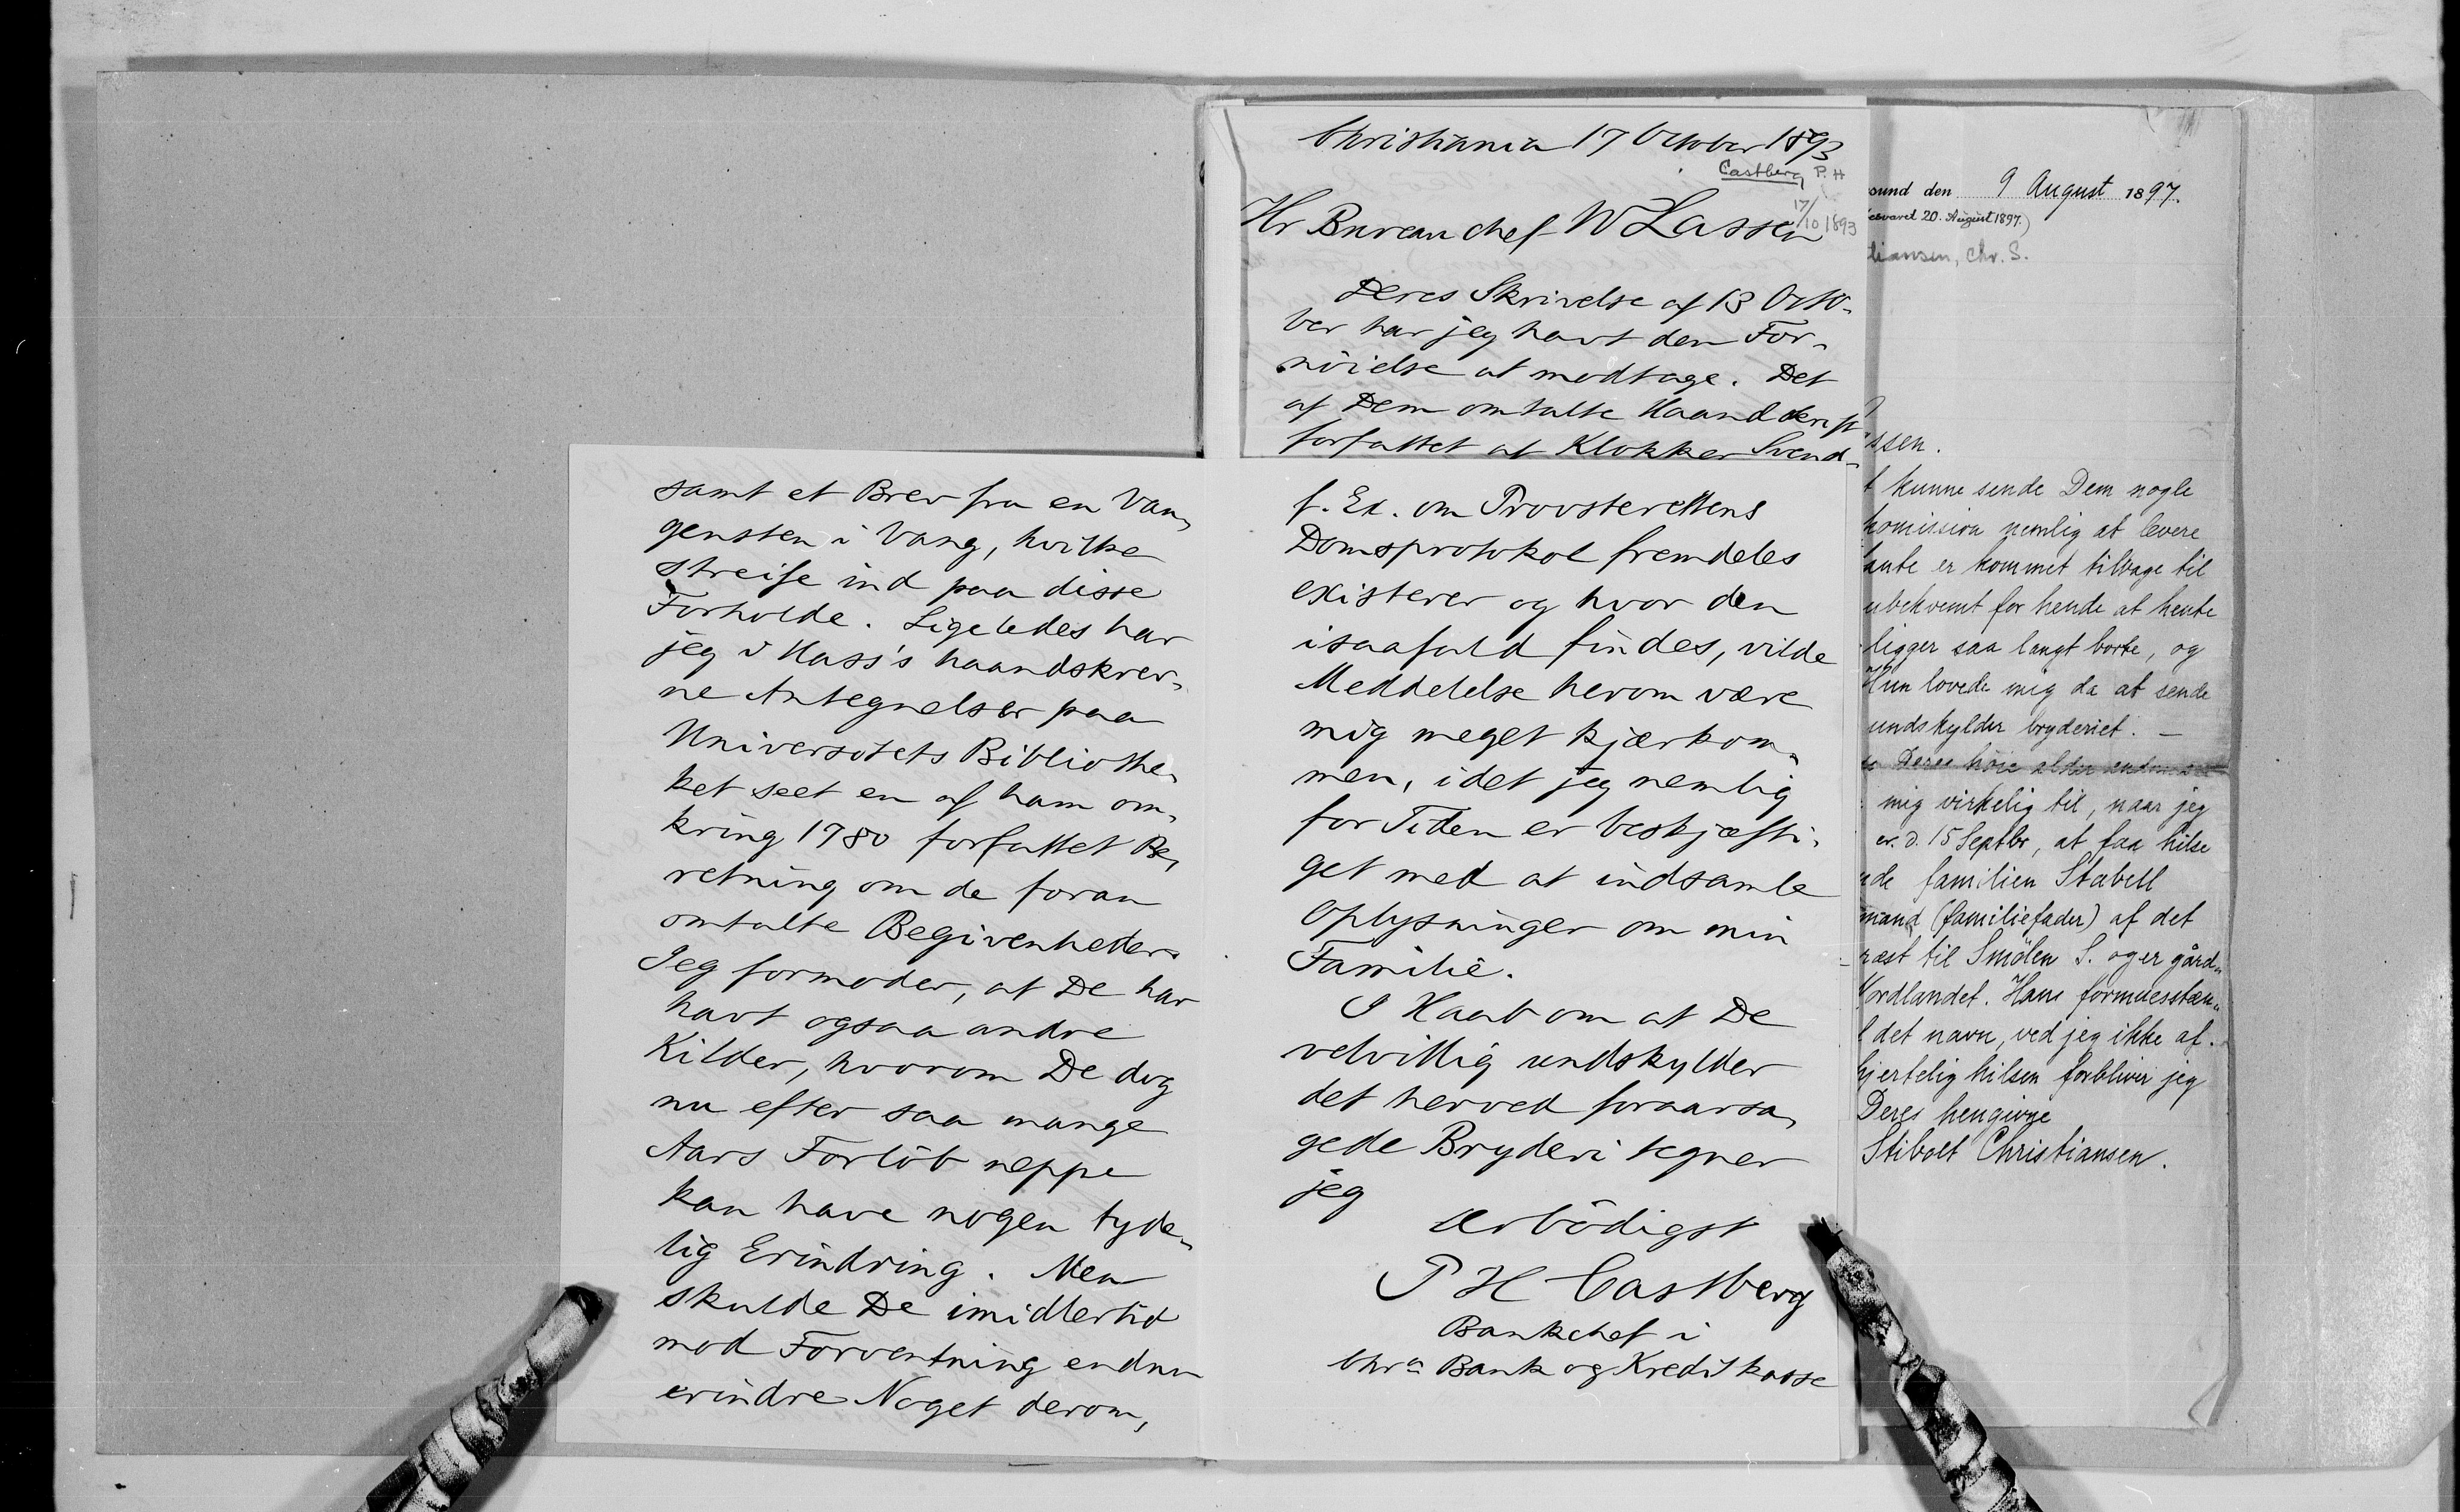 Christiania 17 October 1893
Castberg P. H
17/10 1893
Hr Bureauchef W Lassen
Deres Skrivelse af 13 Octo-
ber har jeg havt den For-
nöielse at modtage. Det
af Dem omtalte Haandskrift
forfattet af Klokker Svend-
samt et Brev fra en Van-
gensten i Vang, hvilke
streife ind paa disse
Forholde. Ligeledes har
jeg i Hass's haandskrev-
ne Antegnelser paa
Universitets Bibliothe-
ket seet en af ham om-
kring 1780 forfattet Be-
retning om de foran
omtalte Begivenheder.
Jeg formoder, at De har
havt ogsaa andre
Kilder, hvorom De dog
nu efter saa mange
Aars Forlöb neppe
kan have nogen tyde-
lig Erindring. Men
skulde De imidlertid
mod Forventning endnu
erindre Noget derom,
f. Ex. om Provsterettens
Domsprotokol fremdeles
existerer og hvor den
isaafald findes, vilde
Meddelelse herom være
mig meget kjærkom-
men, idet jeg nemlig
for Tiden er beskjæfti-
get med at indsamle
Oplysninger om min
Familie.
I Haab om at De
velvillig undskylder
det herved foraarsa-
gede Bryderi tegner
jeg
ærbödigst
P H Castberg
Bankchef i
Chra Bank og Kreditkasse
sund den 9 August 1897.
esvaret 20. August 1897.)
tiansen, Chr. S.
ssen.
t kunne sende Dem nogle
komission nemlig at levere
tante er kommet tilbage til
ubekvemt for hende at hente
ligger saa langt borte, og
Hun lovede mig da at sende
undskylder bryderiet. —
Deres höie alder
mig virkelig til, naar jeg
er. d. 15 Septbr, at faa hilse
nde familien Stabell
mand (familiefader) af det
ræst til Smölen S. og er gård-
Nordlandet. Hans formuesstæn-
l det navn, ved jeg ikke af.
hjertelig hilsen forbliver jeg
Deres hengivne
Stibolt Christiansen.